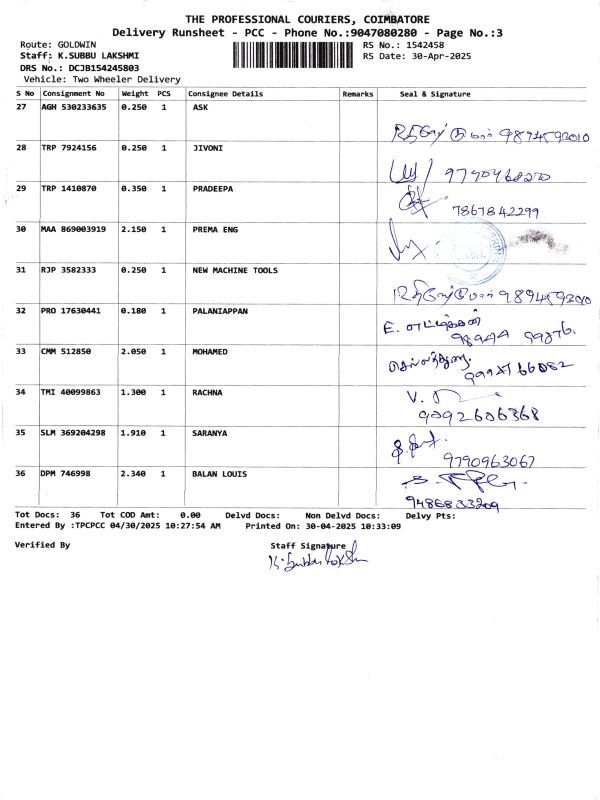 THE PROFESSIONAL COURIERS, COIMBATORE
Delivery Runsheet - PCC - Phone No.:9047080280 - Page No.:3
Route: GOLDWIN RS No.: 1542458
Staff: K.SUBBU LAKSHMI RS Date: 30-Apr-2025
DRS No.: DCJB154245803
Vehicle: Two Wheeler Delivery
S No Consignment No Weight PCS Consignee Details Remarks Seal & Signature
27 AGH 530233635 0.250 1 ASK
28 TRP 7924156 0.250 1 JIVONI
29 TRP 1410870 0.350 1 PRADEEPA
7867842299
30 MAA 869003919 2.150 1 PREMA ENG
31 RJP 3582333 0.250 1 NEW MACHINE TOOLS
32 PRO 17630441 0.180 1 PALANIAPPAN
33 CMM 512850 2.050 1 MOHAMED
34 TMI 40099863 1.300 1 RACHNA
9092606368
35 SLM 369204298 1.910 1 SARANYA
9790963067
36 DPM 746998 2.340 1 BALAN LOUIS
9486833209
Tot Docs: 36 Tot COD Amt: 0.00 Delvd Docs: Non Delvd Docs: Delvy Pts:
Entered By :TPCPCC 04/30/2025 10:27:54 AM Printed On: 30-04-2025 10:33:09
Verified By Staff Signature